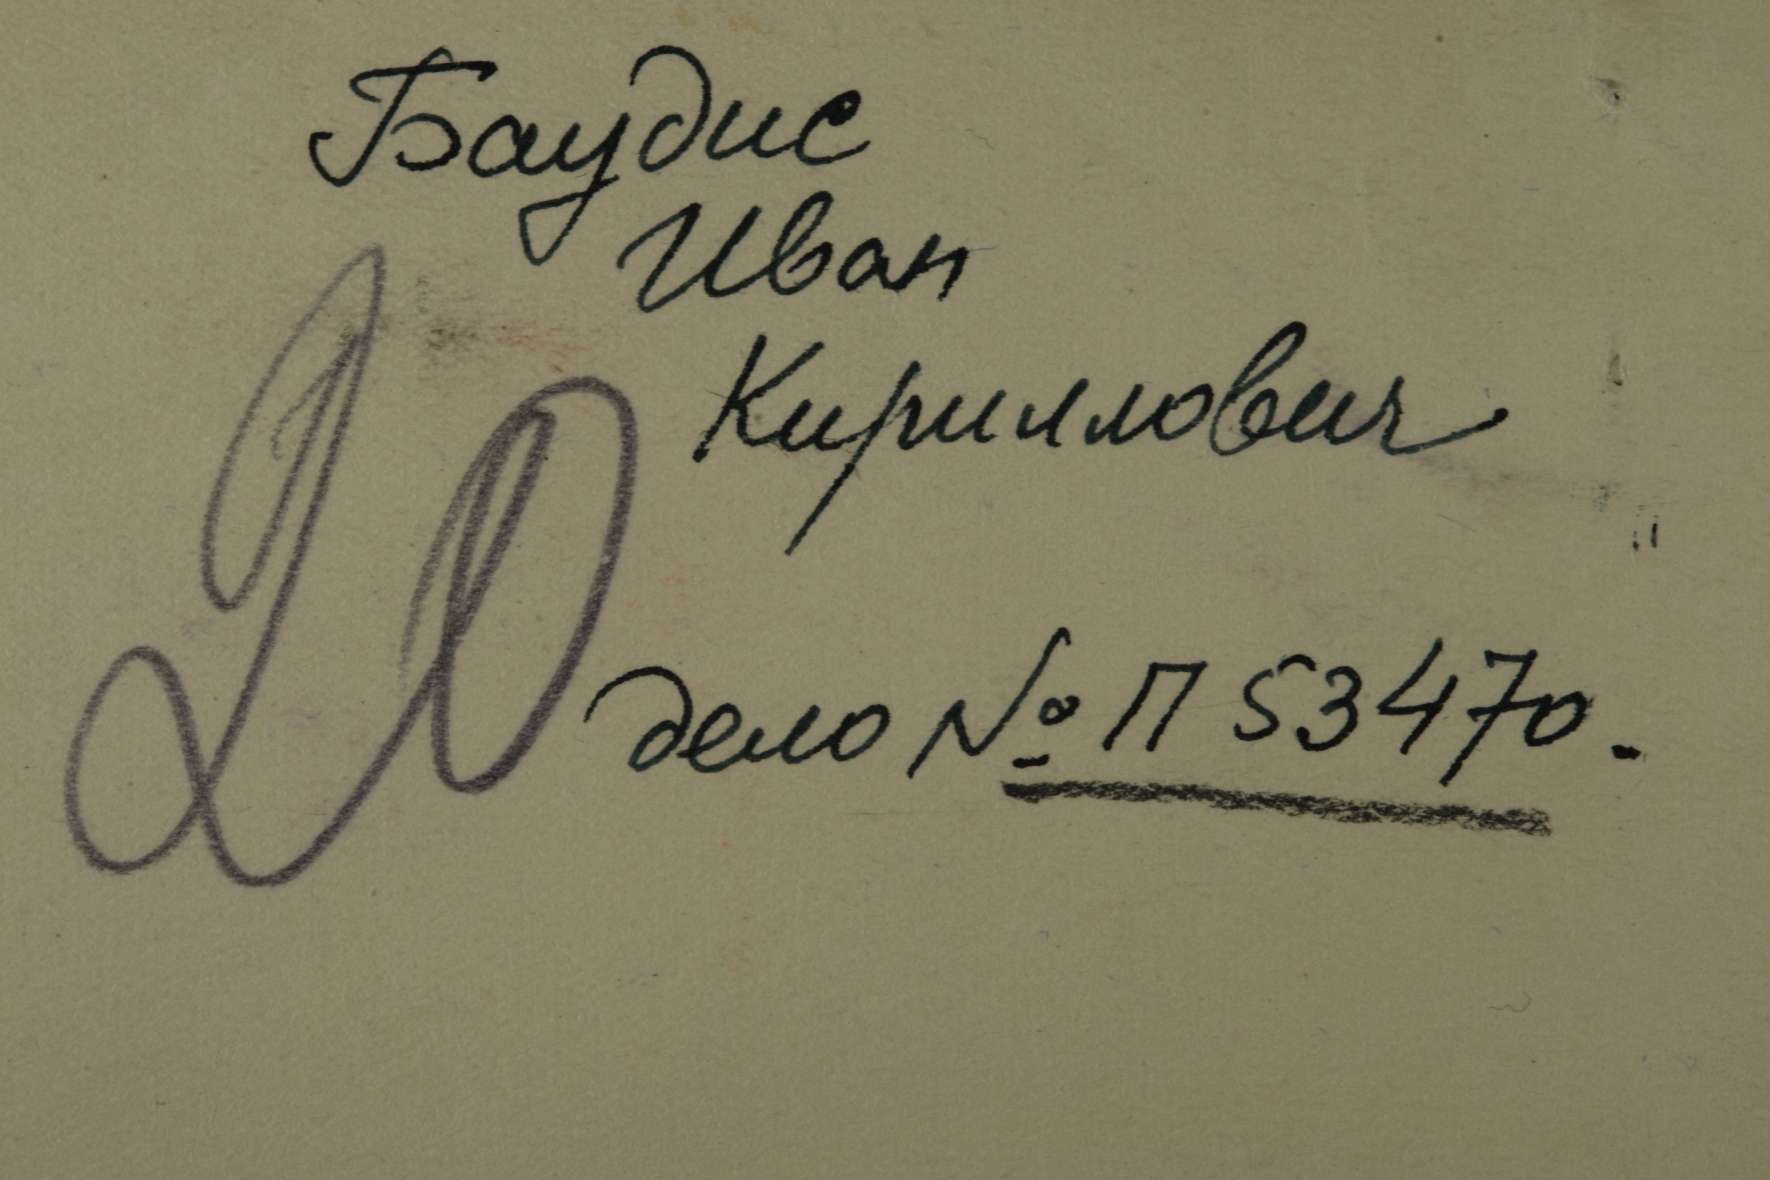 Баудис
Иван
Кириллович
20
дело № П 53470.